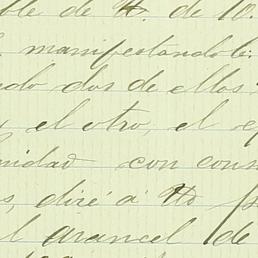 ble de U. de 10.
manifestandole:
do dos de ellos
y el otro, el
nidad con cons
s, diré á Us
l arancel de